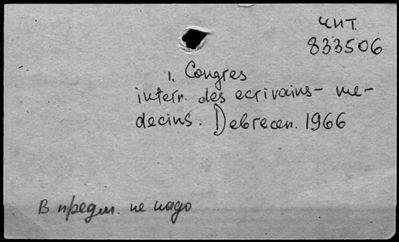 чит.
833506
1. Congres
intern. des ecrivains-me-
decins. Debrecen. 1966
В предм. не надо